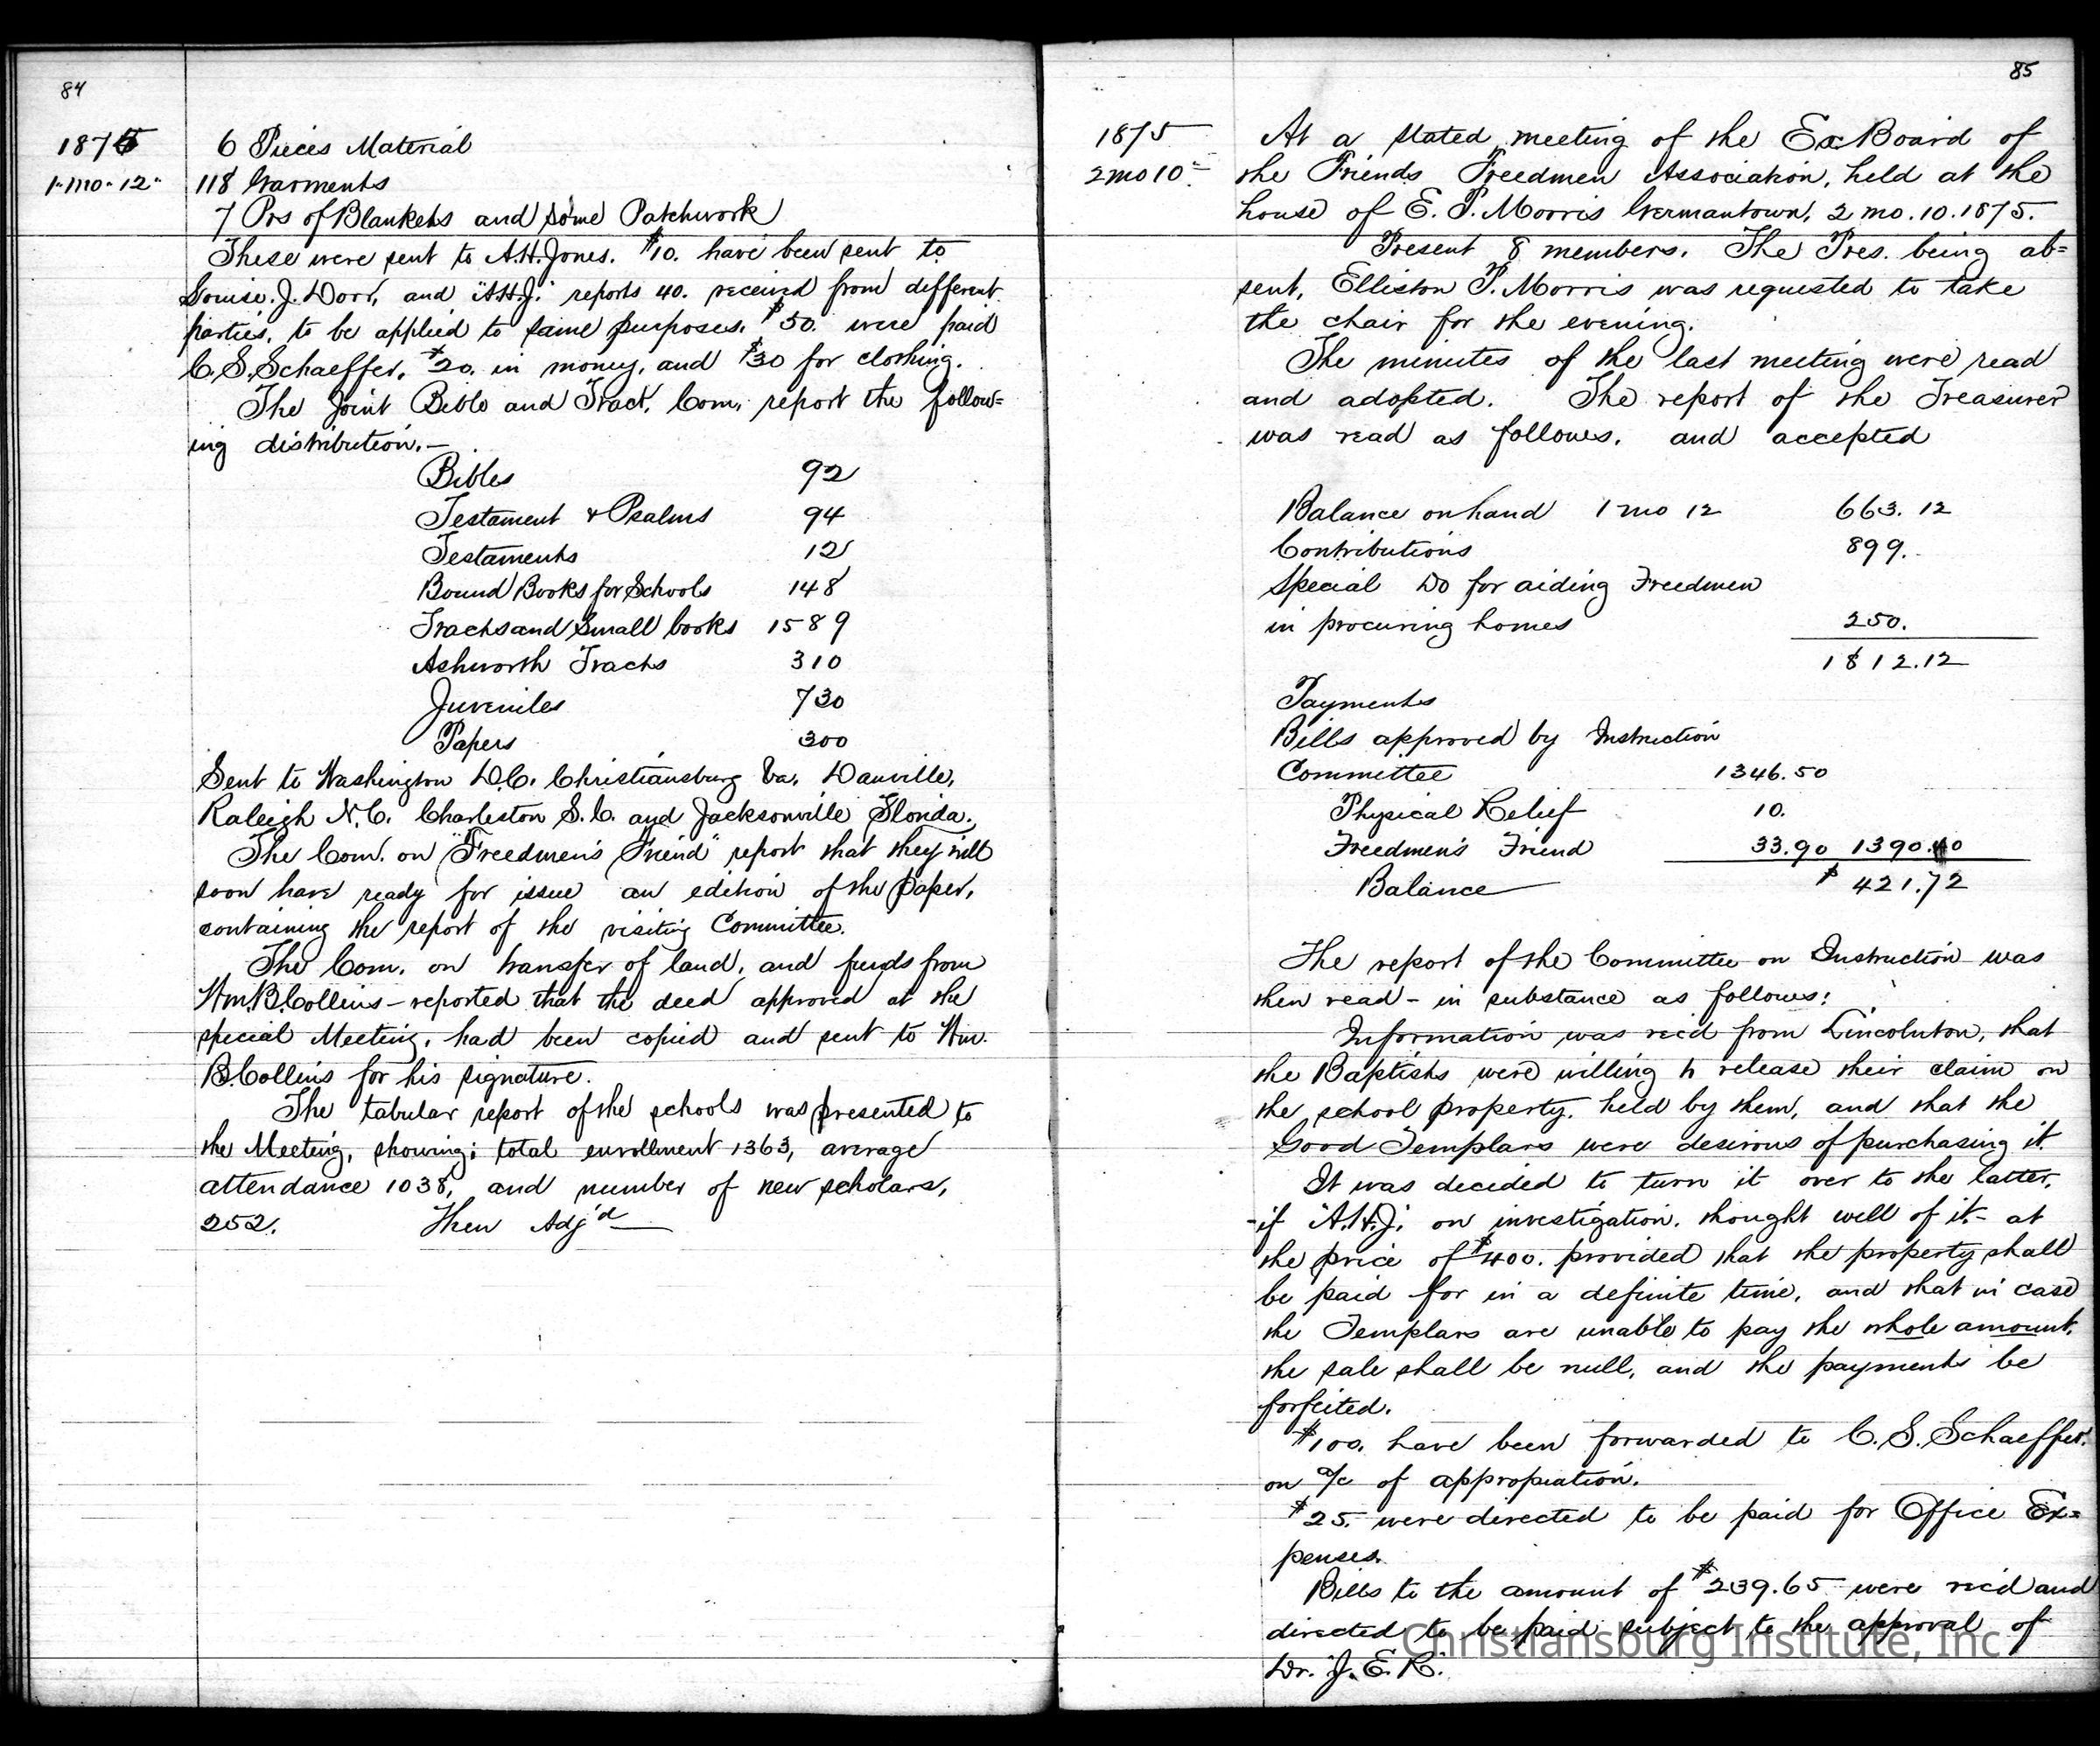 84
1875
1.mo.12.
6 Pieces Material
118 Garments
7 Prs of Blankets and some Patchwork
These were sent to A.H.Jones. $10. have been sent to
Louise.J.Dorr, and "A.H.J." reports 40. received from different
parties, to be applied to same purposes. $50. were paid
C.S.Schaeffer. $20. in money, and $30 for clothing.
The Joint Bible and Tract, Com. report the follow=
ing distribution.—
Bibles 92
Testament & Psalms 94
Testaments 12
Bound Books for Schools 148
Tracts and Small books 1589
Ashworth Tracts 310
Juveniles 730
Papers 300
Sent to Washington D.C. Christiansburg Va. Danville,
Raleigh N.C. Charleston S.C. and Jacksonville Florida.
The Com. on "Freedmen's Friend" report that they will
soon have ready for issue an edition of the paper,
containing the report of the visiting Committee.
The Com. on transfer of land, and funds from
Wm.B.Collins—reported that the deed approved at the
special Meeting, had been copied and sent to Wm.
B.Collins for his signature.
The tabular report of the schools was presented to
the Meeting, showing; total enrollment 1363, average
attendance 1038, and number of new scholars,
252. Then Adj'd
85
1875
2mo10
At a stated meeting of the Ex. Board of
the Friends Freedmen Association, held at the
house of E. P. Morris Germantown, 2 mo. 10. 1875.
Present 8 members. The Pres. being ab=
sent, Elliston P. Morris was requested to take
the chair for the evening.
The minutes of the last meeting were read
and adopted. The report of the Treasurer
was read as follows, and accepted
Balance on hand 1 mo 12 663.12
Contributions 899.
Special Do for aiding Freedmen
in procuring homes 250.
1812.12
Payments
Bills approved by Instruction
Committee 1346.50
Physical Relief 10.
Freedmen's Friend 33.90 1390.40
Balance $ 421.72
The report of the Committee on Instruction was
then read - in substance as follows:
Information was rec'd from Lincolnton, that
the Baptists were willing to release their claim on
the school property. held by them, and that the
Good Templars were desirous of purchasing it.
It was decided to turn it over to the latter,
-if "A.H.J." on investigation. thought well of it.- at
the price of $400. provided that the property shall
be paid for in a definite time, and that in case
the Templars are unable to pay the whole amount,
the sale shall be null, and the payments be
forfeited.
$100. have been forwarded to C. S. Schaeffer.
on a/c of appropiation.
$25. were directed to be paid for Office Ex=
penses.
Bills to the amount of $239.65 were rec'd and
directed to be paid subject to the approval of
Dr. J. E. R.
Christiansburg Institute, Inc